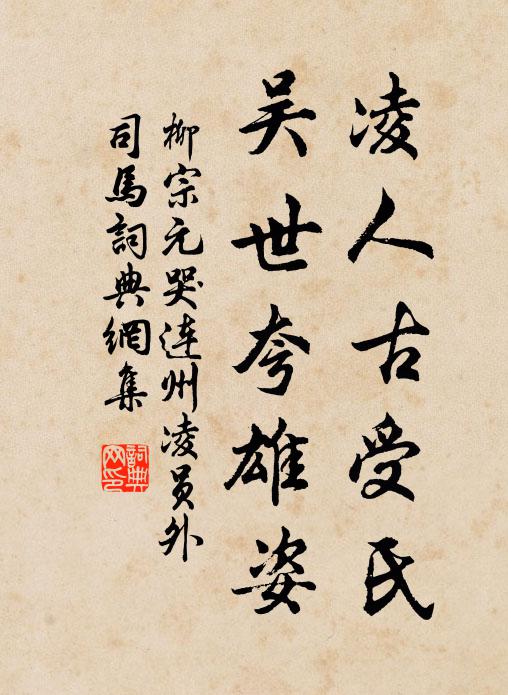 凌人古受氏
吴世夸雄姿
柳宗元哭连州凌员外
司馬詞典網集
詞典网印